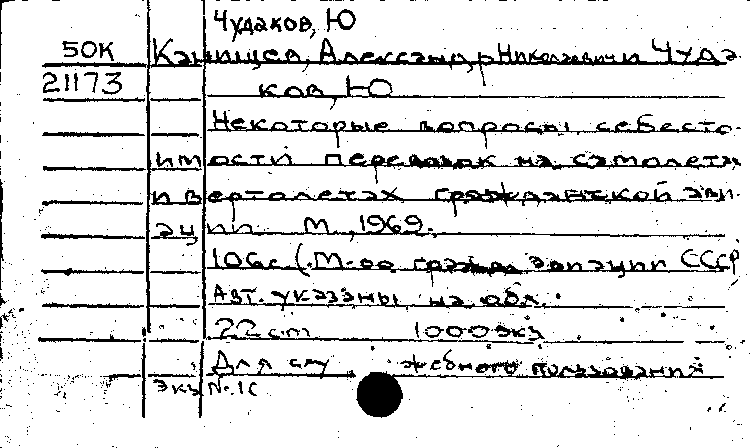 Чудаков, Ю
50К Канищев, Александр Николаевич и Чуда-
21173 ков, Ю
Некоторые вопросы себесто-
имости перевозок на самолетах
и вертолетах гражданской ави-
ации М., 1969.
106с (М-во гражд авиации СССР
Авт. указаны на обл.
22cm 1000экз
Для служебного пользования
Экз №.1с